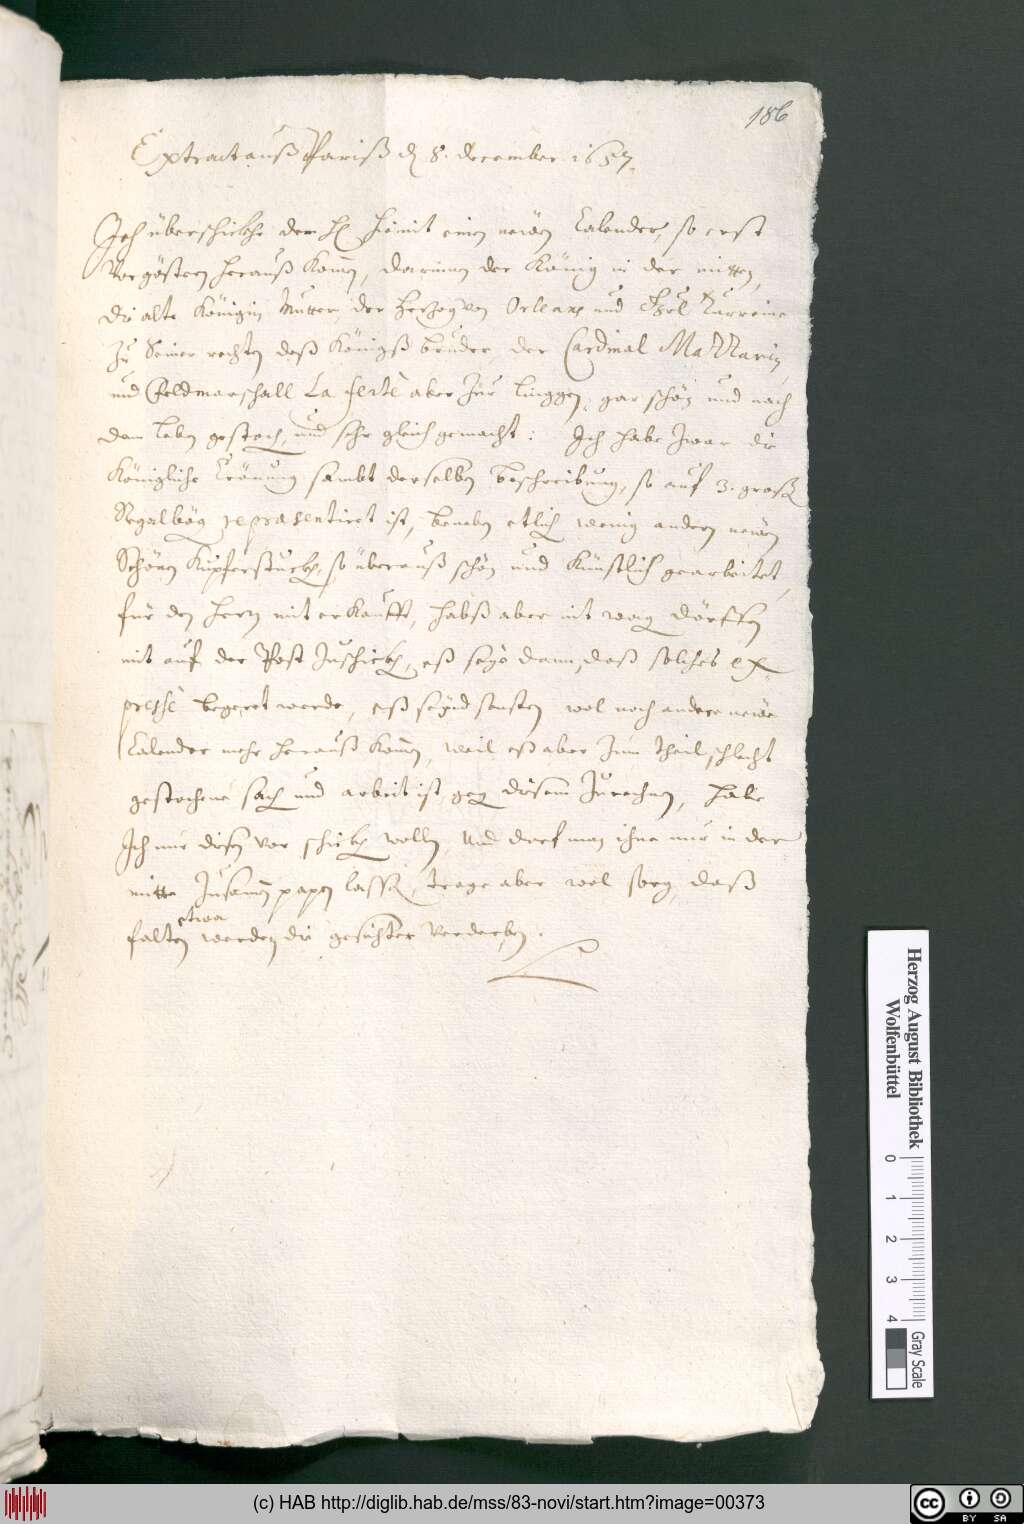 186
Extract auß Pariß dʒ 8. december 1657.
Ich überschickhe dem H hiemit einen newen Calender, so erst
vorgöstern herauß komen, darinnen der König in der mitten,
die alte Königin Mutter, der Herzog von Orleans und Türenne
zu Seiner rechten deß Königß bruder, der Cardinal Mazzarin,
und Feldmarschall La ferte aber zur linggen, gar schön und nach
dem leben gestoch, und sehr gleich gemacht: Ich habe zwar die
Königliche Crönung sambt derselben beschreibung, so auf 3. große
Regalbög repræsentiret ist, beneben etlich wenig andern newen
Schönen Kupferstuckh, so überauß schön und Künstlich gearbeitet,
für den Herrn mit erkaufft, habß aber nit wag dörffen
mit auf der Post zuschickh, eß seye dann, daß solches ex-
pressè begeret werde, eß seynd sonsten wol noch andere newe
Calender mehr herauß komen, weil eß aber zum theil schlecht
gestochene sach und arbeit ist, geg disem zurechnen, habe
Ich nur disen vor schickh wollen, und darf man ihne nur in der
mitte zusamen papen lassen, trage aber wol sorg, daß
etwa
falten werden die gesichter verderben.
Herzog August Bibliothek
Wolfenbüttel
0 1 2 3 4
Gray Scale
(c) HAB http://diglib.hab.de/mss/83-novi/start.htm?image=00373
cc BY SA